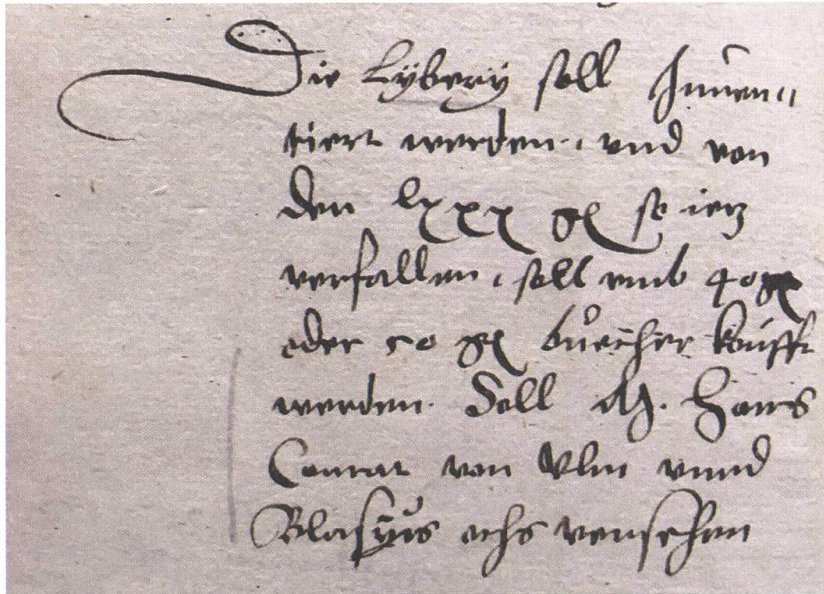 Die Lÿberÿ soll Jnnen=
tiert werden, vnd von
den lxxx gl so ietz
verfallen, soll vmb 40 gl
oder 50 gl buecher koufft
werden. Soll M. Hans
Conrat von Vlm vnnd
Blasÿus ochs versehen